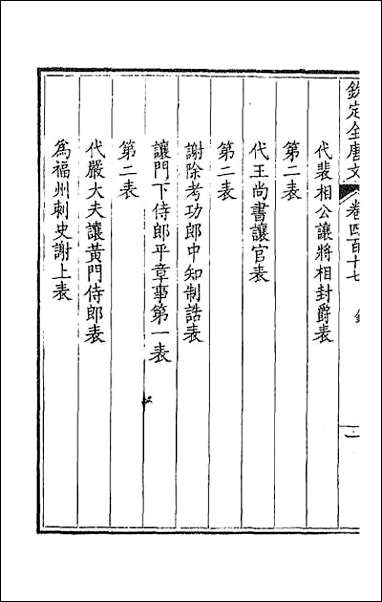 欽定全唐文 卷四百十七 二
代裴相公讓將相封爵表
第二表
代王尚書讓官表
第二表
謝除考功郎中知制誥表
讓門下侍郎平章事第一表
第二表
代嚴大夫讓黃門侍郎表
為福州刺史謝上表